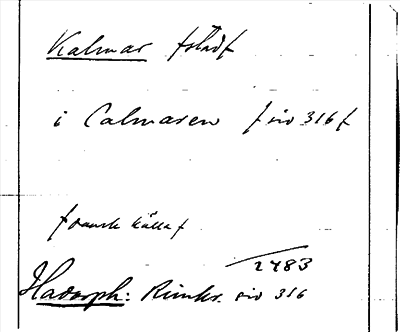 Kalmar fstadf
i Calmaren f sid 316 f
f dansk källa f
1483
Hadorph: Rimkr. sid 316